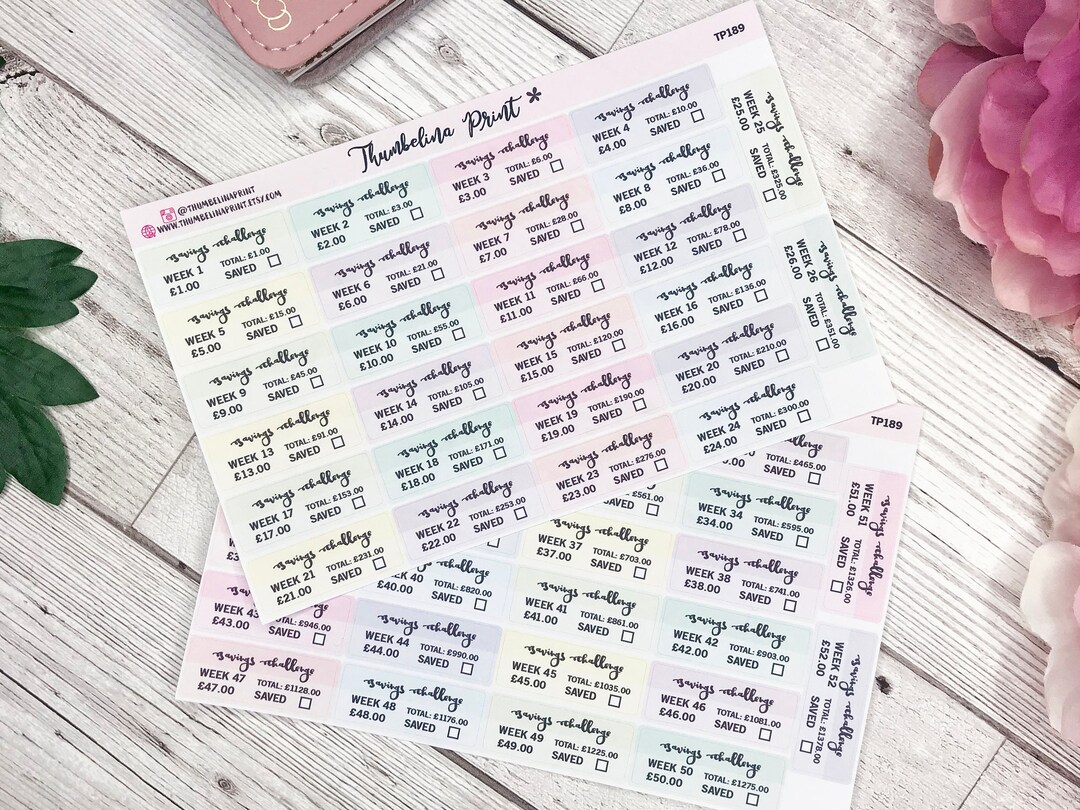 TP189
Thumbelina Print *
@THUMBELINAPRINT
WWW.THUMBELINAPRINT.ETSY.COM
Savings Challenge
WEEK 1 TOTAL: £1.00
£1.00 SAVED
Savings Challenge
WEEK 2 TOTAL: £3.00
£2.00 SAVED
Savings Challenge
WEEK 3 TOTAL: £6.00
£3.00 SAVED
Savings Challenge
WEEK 4 TOTAL: £10.00
£4.00 SAVED
Savings Challenge
WEEK 5 TOTAL: £15.00
£5.00 SAVED
Savings Challenge
WEEK 6 TOTAL: £21.00
£6.00 SAVED
Savings Challenge
WEEK 7 TOTAL: £28.00
£7.00 SAVED
Savings Challenge
WEEK 8 TOTAL: £36.00
£8.00 SAVED
Savings Challenge
WEEK 9 TOTAL: £45.00
£9.00 SAVED
Savings Challenge
WEEK 10 TOTAL: £55.00
£10.00 SAVED
Savings Challenge
WEEK 11 TOTAL: £66.00
£11.00 SAVED
Savings Challenge
WEEK 12 TOTAL: £78.00
£12.00 SAVED
Savings Challenge
WEEK 13 TOTAL: £91.00
£13.00 SAVED
Savings Challenge
WEEK 14 TOTAL: £105.00
£14.00 SAVED
Savings Challenge
WEEK 15 TOTAL: £120.00
£15.00 SAVED
Savings Challenge
WEEK 16 TOTAL: £136.00
£16.00 SAVED
Savings Challenge
WEEK 17 TOTAL: £153.00
£17.00 SAVED
Savings Challenge
WEEK 18 TOTAL: £171.00
£18.00 SAVED
Savings Challenge
WEEK 19 TOTAL: £190.00
£19.00 SAVED
Savings Challenge
WEEK 20 TOTAL: £210.00
£20.00 SAVED
Savings Challenge
WEEK 21 TOTAL: £231.00
£21.00 SAVED
Savings Challenge
WEEK 22 TOTAL: £253.00
£22.00 SAVED
Savings Challenge
WEEK 23 TOTAL: £276.00
£23.00 SAVED
Savings Challenge
WEEK 24 TOTAL: £300.00
£24.00 SAVED
Savings Challenge
WEEK 25 TOTAL: £325.00
£25.00 SAVED
Savings Challenge
WEEK 26 TOTAL: £351.00
£26.00 SAVED
TP189
TOTAL: £465.00
SAVED
£561.00
SAVED
Savings Challenge
WEEK 34 TOTAL: £595.00
£34.00 SAVED
Savings Challenge
WEEK 37 TOTAL: £703.00
£37.00 SAVED
Savings Challenge
WEEK 38 TOTAL: £741.00
£38.00 SAVED
Challenge
WEEK 40 TOTAL: £820.00
£40.00 SAVED
Savings Challenge
WEEK 41 TOTAL: £861.00
£41.00 SAVED
Savings Challenge
WEEK 42 TOTAL: £903.00
£42.00 SAVED
WEEK 43 TOTAL: £946.00
£43.00 SAVED
Savings Challenge
WEEK 44 TOTAL: £990.00
£44.00 SAVED
Savings Challenge
WEEK 45 TOTAL: £1035.00
£45.00 SAVED
Savings Challenge
WEEK 46 TOTAL: £1081.00
£46.00 SAVED
Savings Challenge
WEEK 47 TOTAL: £1128.00
£47.00 SAVED
Savings Challenge
WEEK 48 TOTAL: £1176.00
£48.00 SAVED
Savings Challenge
WEEK 49 TOTAL: £1225.00
£49.00 SAVED
Savings Challenge
WEEK 50 TOTAL: £1275.00
£50.00 SAVED
Savings Challenge
WEEK 51 TOTAL: £1326.00
£51.00 SAVED
Savings Challenge
WEEK 52 TOTAL: £1378.00
£52.00 SAVED